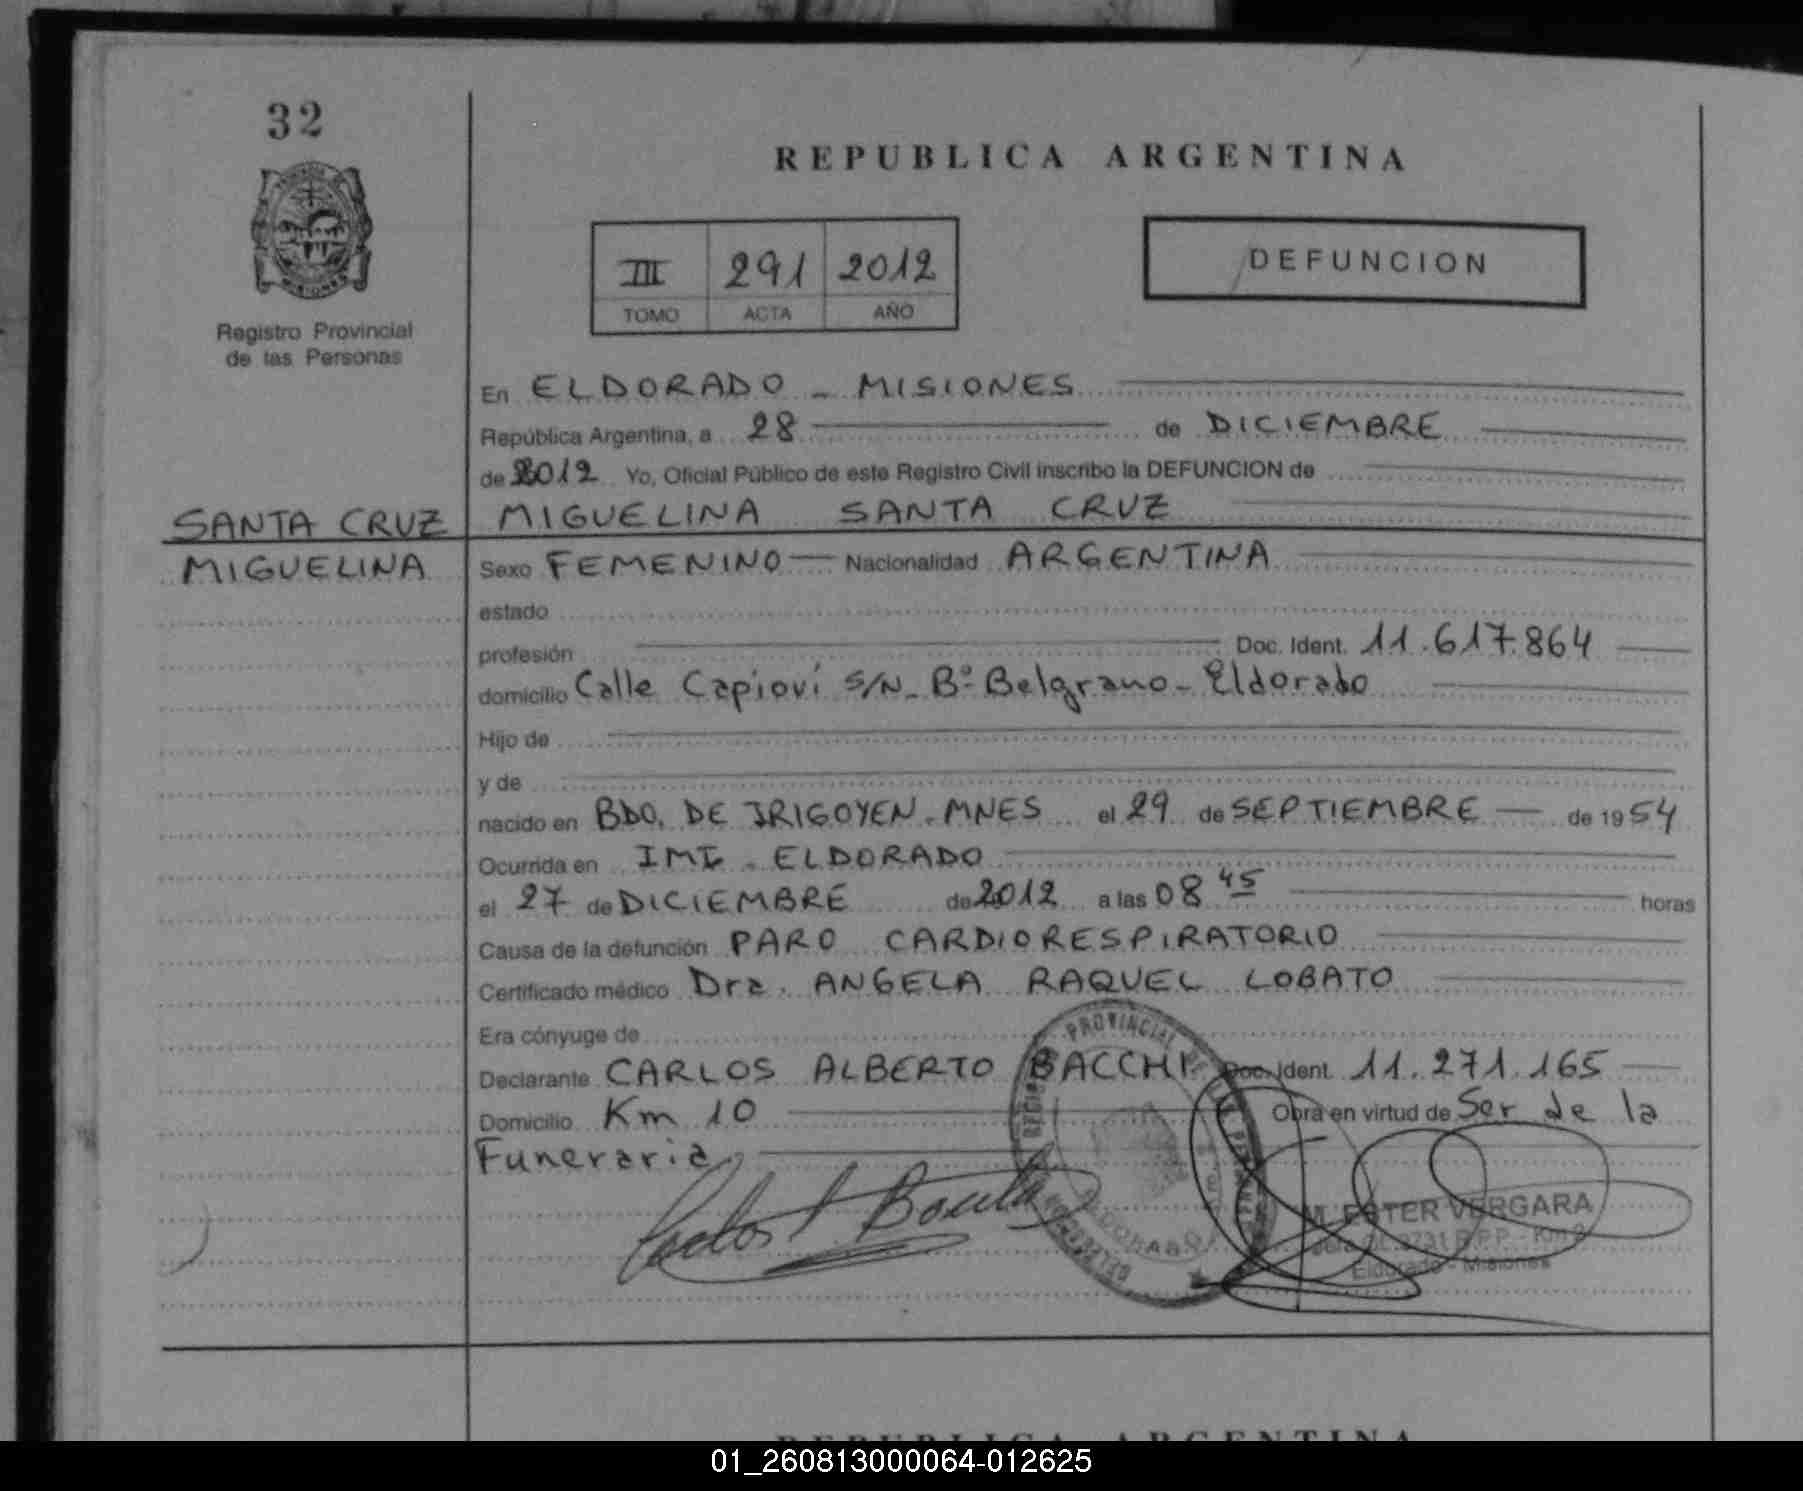 32
MISIONES
Registro Provincial
de las Personas
REPUBLICA ARGENTINA
III 291 2012
TOMO ACTA AÑO
DEFUNCION
En ELDORADO - MISIONES
República Argentina, a 28 de DICIEMBRE
de 2012 Yo, Oficial Público de este Registro Civil inscribo la DEFUNCION de
SANTA CRUZ MIGUELINA SANTA CRUZ
MIGUELINA Sexo FEMENINO Nacionalidad ARGENTINA
estado
profesión Doc. Ident. 11.617.864
domicilio Calle Capioví S/N - Bº Belgrano - Eldorado
Hijo de
y de
nacido en BDO. DE IRIGOYEN. MNES el 29 de SEPTIEMBRE de 1954
Ocurrida en ELDORADO
el 27 de DICIEMBRE de 2012 a las 08 45 horas
Causa de la defunción PARO CARDIORESPIRATORIO
Certificado médico Dra. ANGELA RAQUEL LOBATO
Era cónyuge de
Declarante CARLOS ALBERTO BACCHI Doc. Ident. 11.271.165
Domicilio Km 10 Obra en virtud de Ser de la
Funeraria
PROVINCIAL DE LAS
ELDORADO
M. ESTER VERGARA
Eldorado - Misiones
REPUBLICA ARGENTINA
01_260813000064-012625